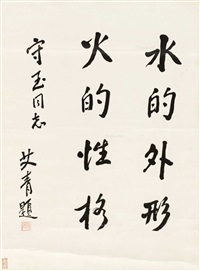 水的外形
火的性格
守玉同志
艾青题